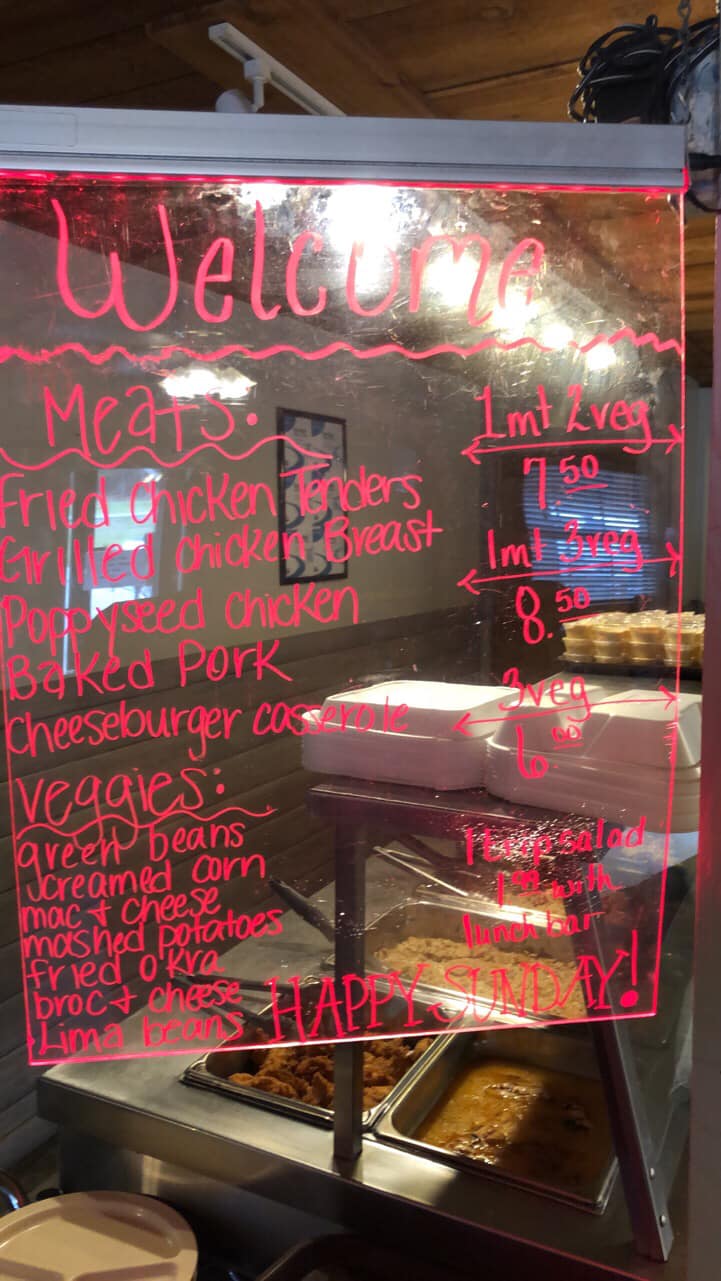 Welcome
Meats:
Fried Chicken Tenders
Grilled Chicken Breast
Poppyseed Chicken
Baked Pork
Cheeseburger casserole
1mt 2veg
7.50
1mt 3veg
8.50
3veg
6.00
Veggies:
green beans
creamed corn
mac + cheese
mashed potatoes
fried okra
broc + cheese
Lima beans
1 trip salad
1.99 with
lunch bar
HAPPY SUNDAY!